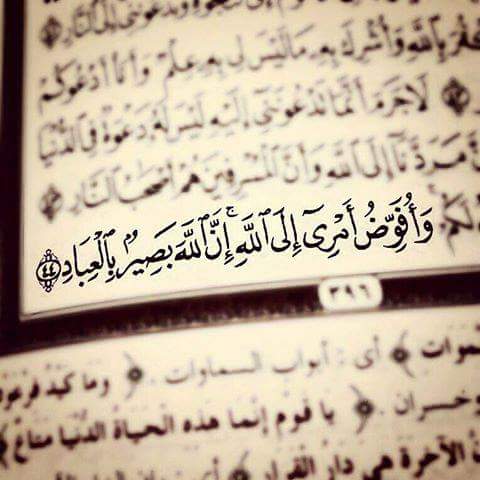 وَتَدْعُونَنِىٓ إِلَى ٱلنَّارِ
بِٱللَّهِ وَأُشْرِكَ بِهِۦ مَا لَيْسَ لِى بِهِۦ عِلْمٌ وَأَنَا۠ أَدْعُوكُمْ
لَا جَرَمَ أَنَّمَا تَدْعُونَنِىٓ إِلَيْهِ لَيْسَ لَهُۥ دَعْوَةٌ فِى ٱلدُّنْيَا
مَرَدَّنَآ إِلَى ٱللَّهِ وَأَنَّ ٱلْمُسْرِفِينَ هُمْ أَصْحَٰبُ ٱلنَّارِ
لَكُمْ وَأُفَوِّضُ أَمْرِىٓ إِلَى ٱللَّهِ ۚ إِنَّ ٱللَّهَ بَصِيرٌۢ بِٱلْعِبَادِ ﴿٤٤﴾
٣٩٦
﴾ أى : أبواب السماوات . ﴿ وما كيد فرعو
وخسران . ﴿ يا قوم إنما هذه الحياة الدنيا متاع ﴾
الآخرة هي دار القرار ﴾